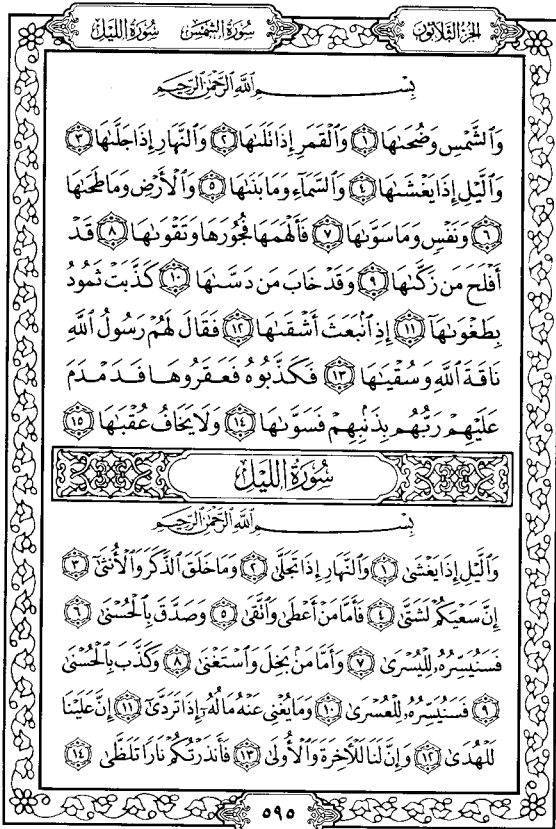 الجزء الثلاثون
سورة الشمس
سورة الليل
بِسْمِ ٱللَّهِ ٱلرَّحْمَٰنِ ٱلرَّحِيمِ
وَٱلشَّمْسِ وَضُحَىٰهَا ١ وَٱلْقَمَرِ إِذَا تَلَىٰهَا ٢ وَٱلنَّهَارِ إِذَا جَلَّىٰهَا ٣
وَٱلَّيْلِ إِذَا يَغْشَىٰهَا ٤ وَٱلسَّمَآءِ وَمَا بَنَىٰهَا ٥ وَٱلْأَرْضِ وَمَا طَحَىٰهَا
٦ وَنَفْسٍ وَمَا سَوَّىٰهَا ٧ فَأَلْهَمَهَا فُجُورَهَا وَتَقْوَىٰهَا ٨ قَدْ
أَفْلَحَ مَن زَكَّىٰهَا ٩ وَقَدْ خَابَ مَن دَسَّىٰهَا ١٠ كَذَّبَتْ ثَمُودُ
بِطَغْوَىٰهَآ ١١ إِذِ ٱنۢبَعَثَ أَشْقَىٰهَا ١٢ فَقَالَ لَهُمْ رَسُولُ ٱللَّهِ
نَاقَةَ ٱللَّهِ وَسُقْيَىٰهَا ١٣ فَكَذَّبُوهُ فَعَقَرُوهَا فَدَمْدَمَ
عَلَيْهِمْ رَبُّهُم بِذَنۢبِهِمْ فَسَوَّىٰهَا ١٤ وَلَا يَخَافُ عُقْبَىٰهَا ١٥
سُورَةُ اللَّيْلِ
بِسْمِ ٱللَّهِ ٱلرَّحْمَٰنِ ٱلرَّحِيمِ
وَٱلَّيْلِ إِذَا يَغْشَىٰ ١ وَٱلنَّهَارِ إِذَا تَجَلَّىٰ ٢ وَمَا خَلَقَ ٱلذَّكَرَ وَٱلْأُنثَىٰٓ ٣
إِنَّ سَعْيَكُمْ لَشَتَّىٰ ٤ فَأَمَّا مَنْ أَعْطَىٰ وَٱتَّقَىٰ ٥ وَصَدَّقَ بِٱلْحُسْنَىٰ ٦
فَسَنُيَسِّرُهُۥ لِلْيُسْرَىٰ ٧ وَأَمَّا مَنۢ بَخِلَ وَٱسْتَغْنَىٰ ٨ وَكَذَّبَ بِٱلْحُسْنَىٰ
٩ فَسَنُيَسِّرُهُۥ لِلْعُسْرَىٰ ١٠ وَمَا يُغْنِى عَنْهُ مَالُهُۥٓ إِذَا تَرَدَّىٰٓ ١١ إِنَّ عَلَيْنَا
لَلْهُدَىٰ ١٢ وَإِنَّ لَنَا لَلْـَٔاخِرَةَ وَٱلْأُولَىٰ ١٣ فَأَنذَرْتُكُمْ نَارًا تَلَظَّىٰ ١٤
٥٩٥